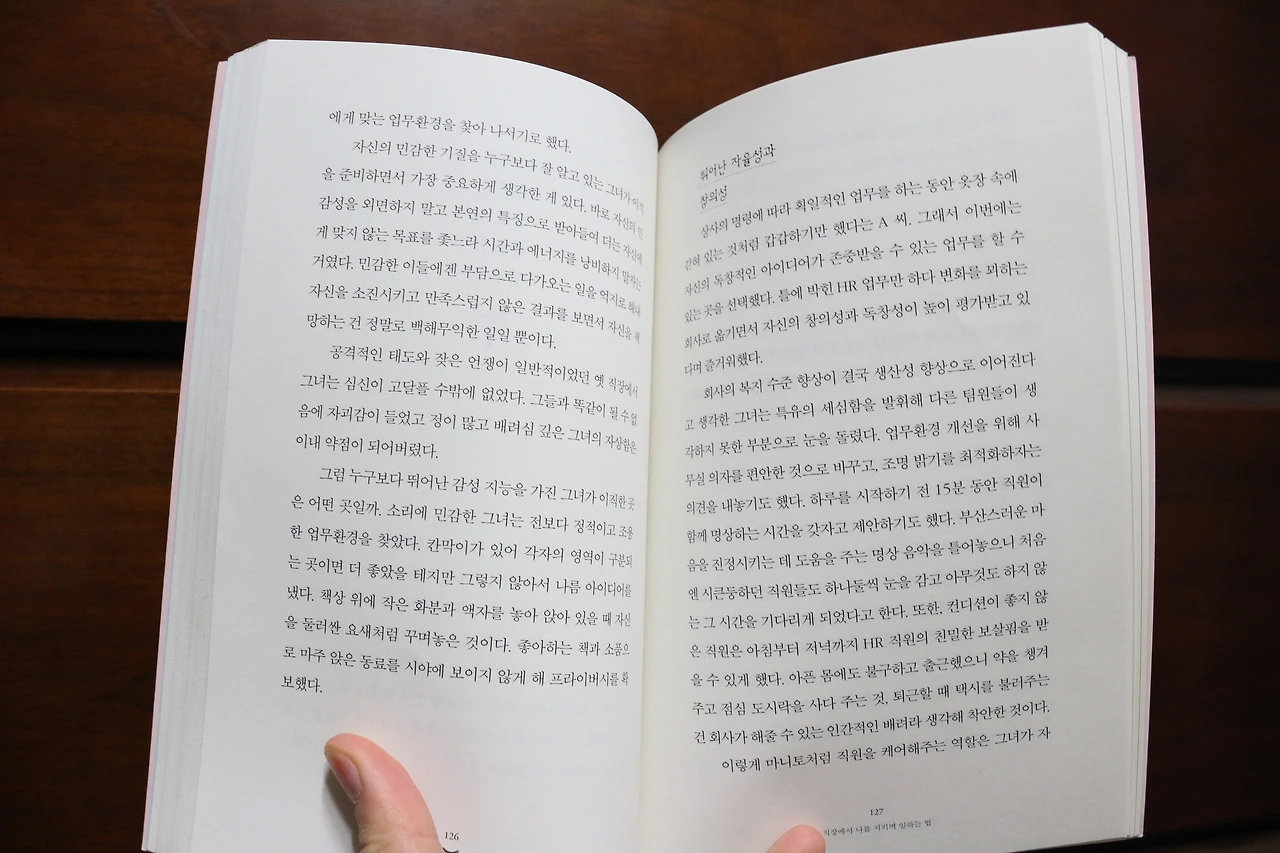 에게 맞는 업무환경을 찾아 나서기로 했다.
자신의 민감한 기질을 누구보다 잘 알고 있는 그녀가 이직
을 준비하면서 가장 중요하게 생각한 게 있다. 바로 자신의 민
감성을 외면하지 말고 본연의 특징으로 받아들여 더는 자신에
게 맞지 않는 목표를 좇느라 시간과 에너지를 낭비하지 말자는
거였다. 민감한 이들에겐 부담으로 다가오는 일을 억지로 해내
자신을 소진시키고 만족스럽지 않은 결과를 보면서 자신을 책
망하는 건 정말로 백해무익한 일일 뿐이다.
공격적인 태도와 잦은 언쟁이 일반적이었던 옛 직장에서
그녀는 심신이 고달플 수밖에 없었다. 그들과 똑같이 될 수 없
음에 자괴감이 들었고 정이 많고 배려심 깊은 그녀의 자상함은
이내 약점이 되어버렸다.
그럼 누구보다 뛰어난 감성 지능을 가진 그녀가 이직한 곳
은 어떤 곳일까. 소리에 민감한 그녀는 전보다 정적이고 조용
한 업무환경을 찾았다. 칸막이가 있어 각자의 영역이 구분되
는 곳이면 더 좋았을 테지만 그렇지 않아서 나름 아이디어를
냈다. 책상 위에 작은 화분과 액자를 놓아 앉아 있을 때 자신
을 둘러싼 요새처럼 꾸며놓은 것이다. 좋아하는 책과 소품으
로 마주 앉은 동료를 시야에 보이지 않게 해 프라이버시를 확
보했다.
126
뛰어난 자율성과
창의성
상사의 명령에 따라 획일적인 업무를 하는 동안 옷장 속에
갇혀 있는 것처럼 갑갑하기만 했다는 A 씨. 그래서 이번에는
자신의 독창적인 아이디어가 존중받을 수 있는 업무를 할 수
있는 곳을 선택했다. 틀에 박힌 HR 업무만 하다 변화를 꾀하는
회사로 옮기면서 자신의 창의성과 독창성이 높이 평가받고 있
다며 즐거워했다.
회사의 복지 수준 향상이 결국 생산성 향상으로 이어진다
고 생각한 그녀는 특유의 세심함을 발휘해 다른 팀원들이 생
각하지 못한 부분으로 눈을 돌렸다. 업무환경 개선을 위해 사
무실 의자를 편안한 것으로 바꾸고, 조명 밝기를 최적화하자는
의견을 내놓기도 했다. 하루를 시작하기 전 15분 동안 직원이
함께 명상하는 시간을 갖자고 제안하기도 했다. 부산스러운 마
음을 진정시키는 데 도움을 주는 명상 음악을 틀어놓으니 처음
엔 시큰둥하던 직원들도 하나둘씩 눈을 감고 아무것도 하지 않
는 그 시간을 기다리게 되었다고 한다. 또한, 컨디션이 좋지 않
은 직원은 아침부터 저녁까지 HR 직원의 친밀한 보살핌을 받
을 수 있게 했다. 아픈 몸에도 불구하고 출근했으니 약을 챙겨
주고 점심 도시락을 사다 주는 것, 퇴근할 때 택시를 불러주는
건 회사가 해줄 수 있는 인간적인 배려라 생각해 착안한 것이다.
이렇게 마니토처럼 직원을 케어해주는 역할은 그녀가 자
127
직장에서 나를 지키며 일하는 법